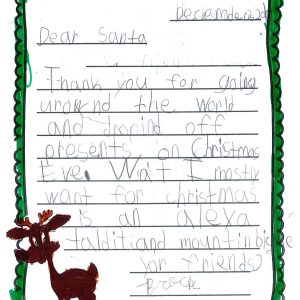 Dear Santa
Thank you for going
uround the world
and droping off
presents on Christmas
Eve. Wat I mostly
want for christmas
is an alexa
and mountinbike
yor friends
brock